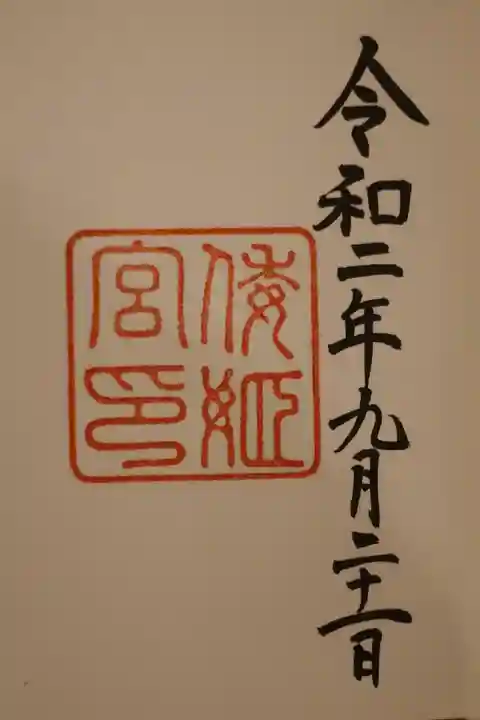 令和二年九月二十一日
倭姫
宮印